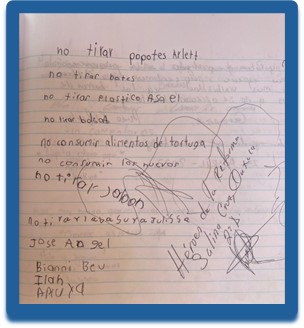 no tirar popotes Arlett
no tirar botes
no tirar plastico Asael
no tirar bolsa
no consumir alimentos de tortuga
no consumir los huevos
no tirar jabon
no tirar la basura Julissa
José Angel
Bianni Bev
Ilah
Héroes de La Reforma
Salina Cruz Oaxaca